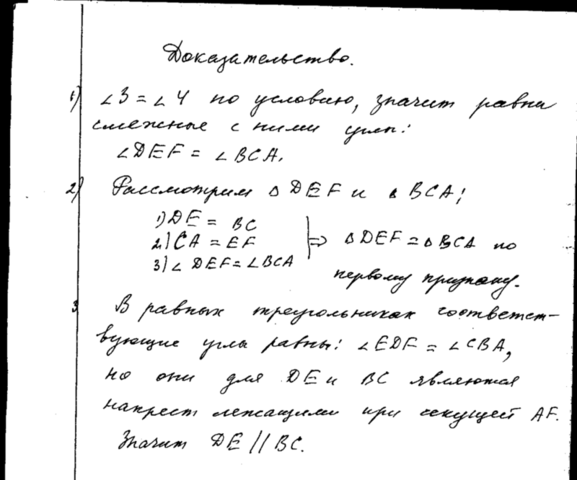 Доказательство.
1) ∠3 = ∠4 по условию, значит равны
смежные с ними углы:
∠DEF = ∠BCA.
2) Рассмотрим △DEF и △BCA:
1) DE = BC
2) CA = EF ⇒ △DEF = △BCA по
3) ∠DEF = ∠BCA
первому признаку.
3. В равных треугольниках соответст-
вующие углы равны: ∠EDF = ∠CBA,
но они для DE и BC являются
накрест лежащими при секущей AF.
Значит DE // BC.